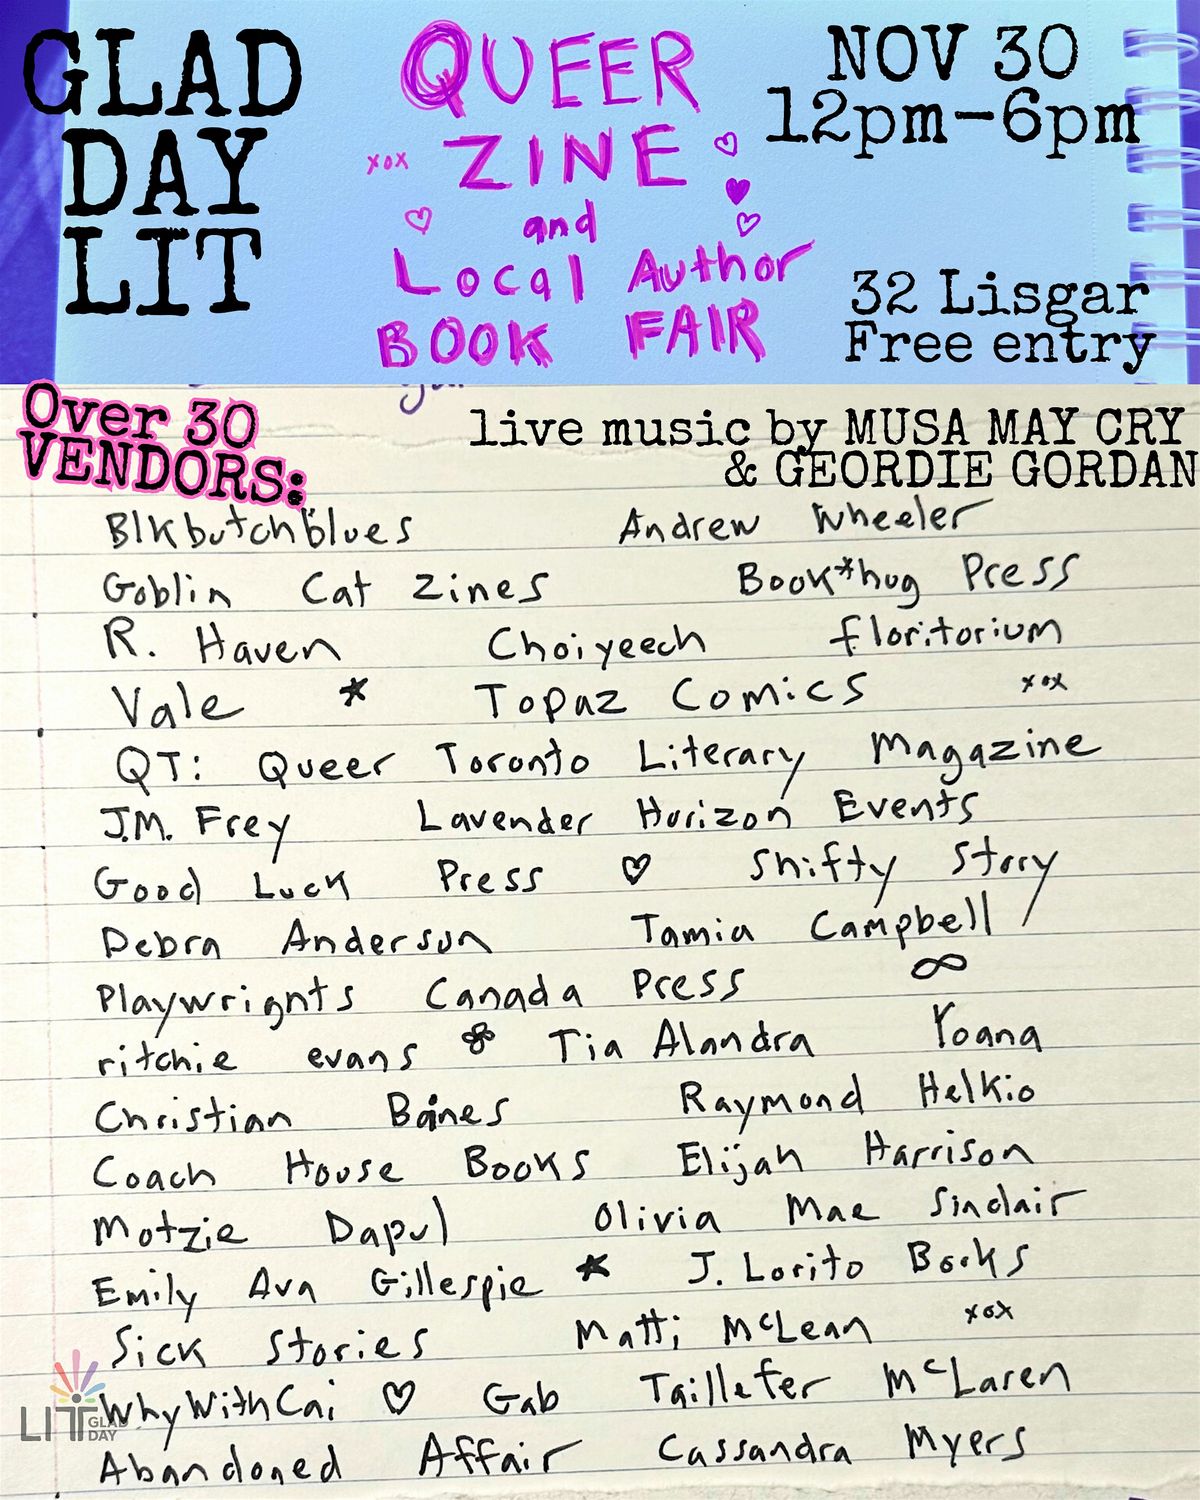 GLAD
DAY
LIT
QUEER
xox ZINE
and
Local Author
BOOK FAIR
NOV 30
12pm-6pm
32 Lisgar
Free entry
Over 30
VENDORS:
live music by MUSA MAY CRY
& GEORDIE GORDAN
Blkbutchblues Andrew Wheeler
Goblin Cat Zines Book*hug Press
R. Haven Choiyeech floritorium
Vale * Topaz Comics xox
QT: Queer Toronto Literary Magazine
J.M. Frey Lavender Horizon Events
Good Luck Press ♡ Shifty Story
Debra Anderson Tamia Campbell
Playwrights Canada Press ∞
ritchie evans Tia Alandra Yoana
Christian Baines Raymond Helkio
Coach House Books Elijah Harrison
Motzie Dapul Olivia Mae Sinclair
Emily Ava Gillespie * J. Lorito Books
Sick Stories Matti McLean xox
WhyWithCai ♡ Gab Taillefer McLaren
Abandoned Affair Cassandra Myers
LIT GLAD
DAY